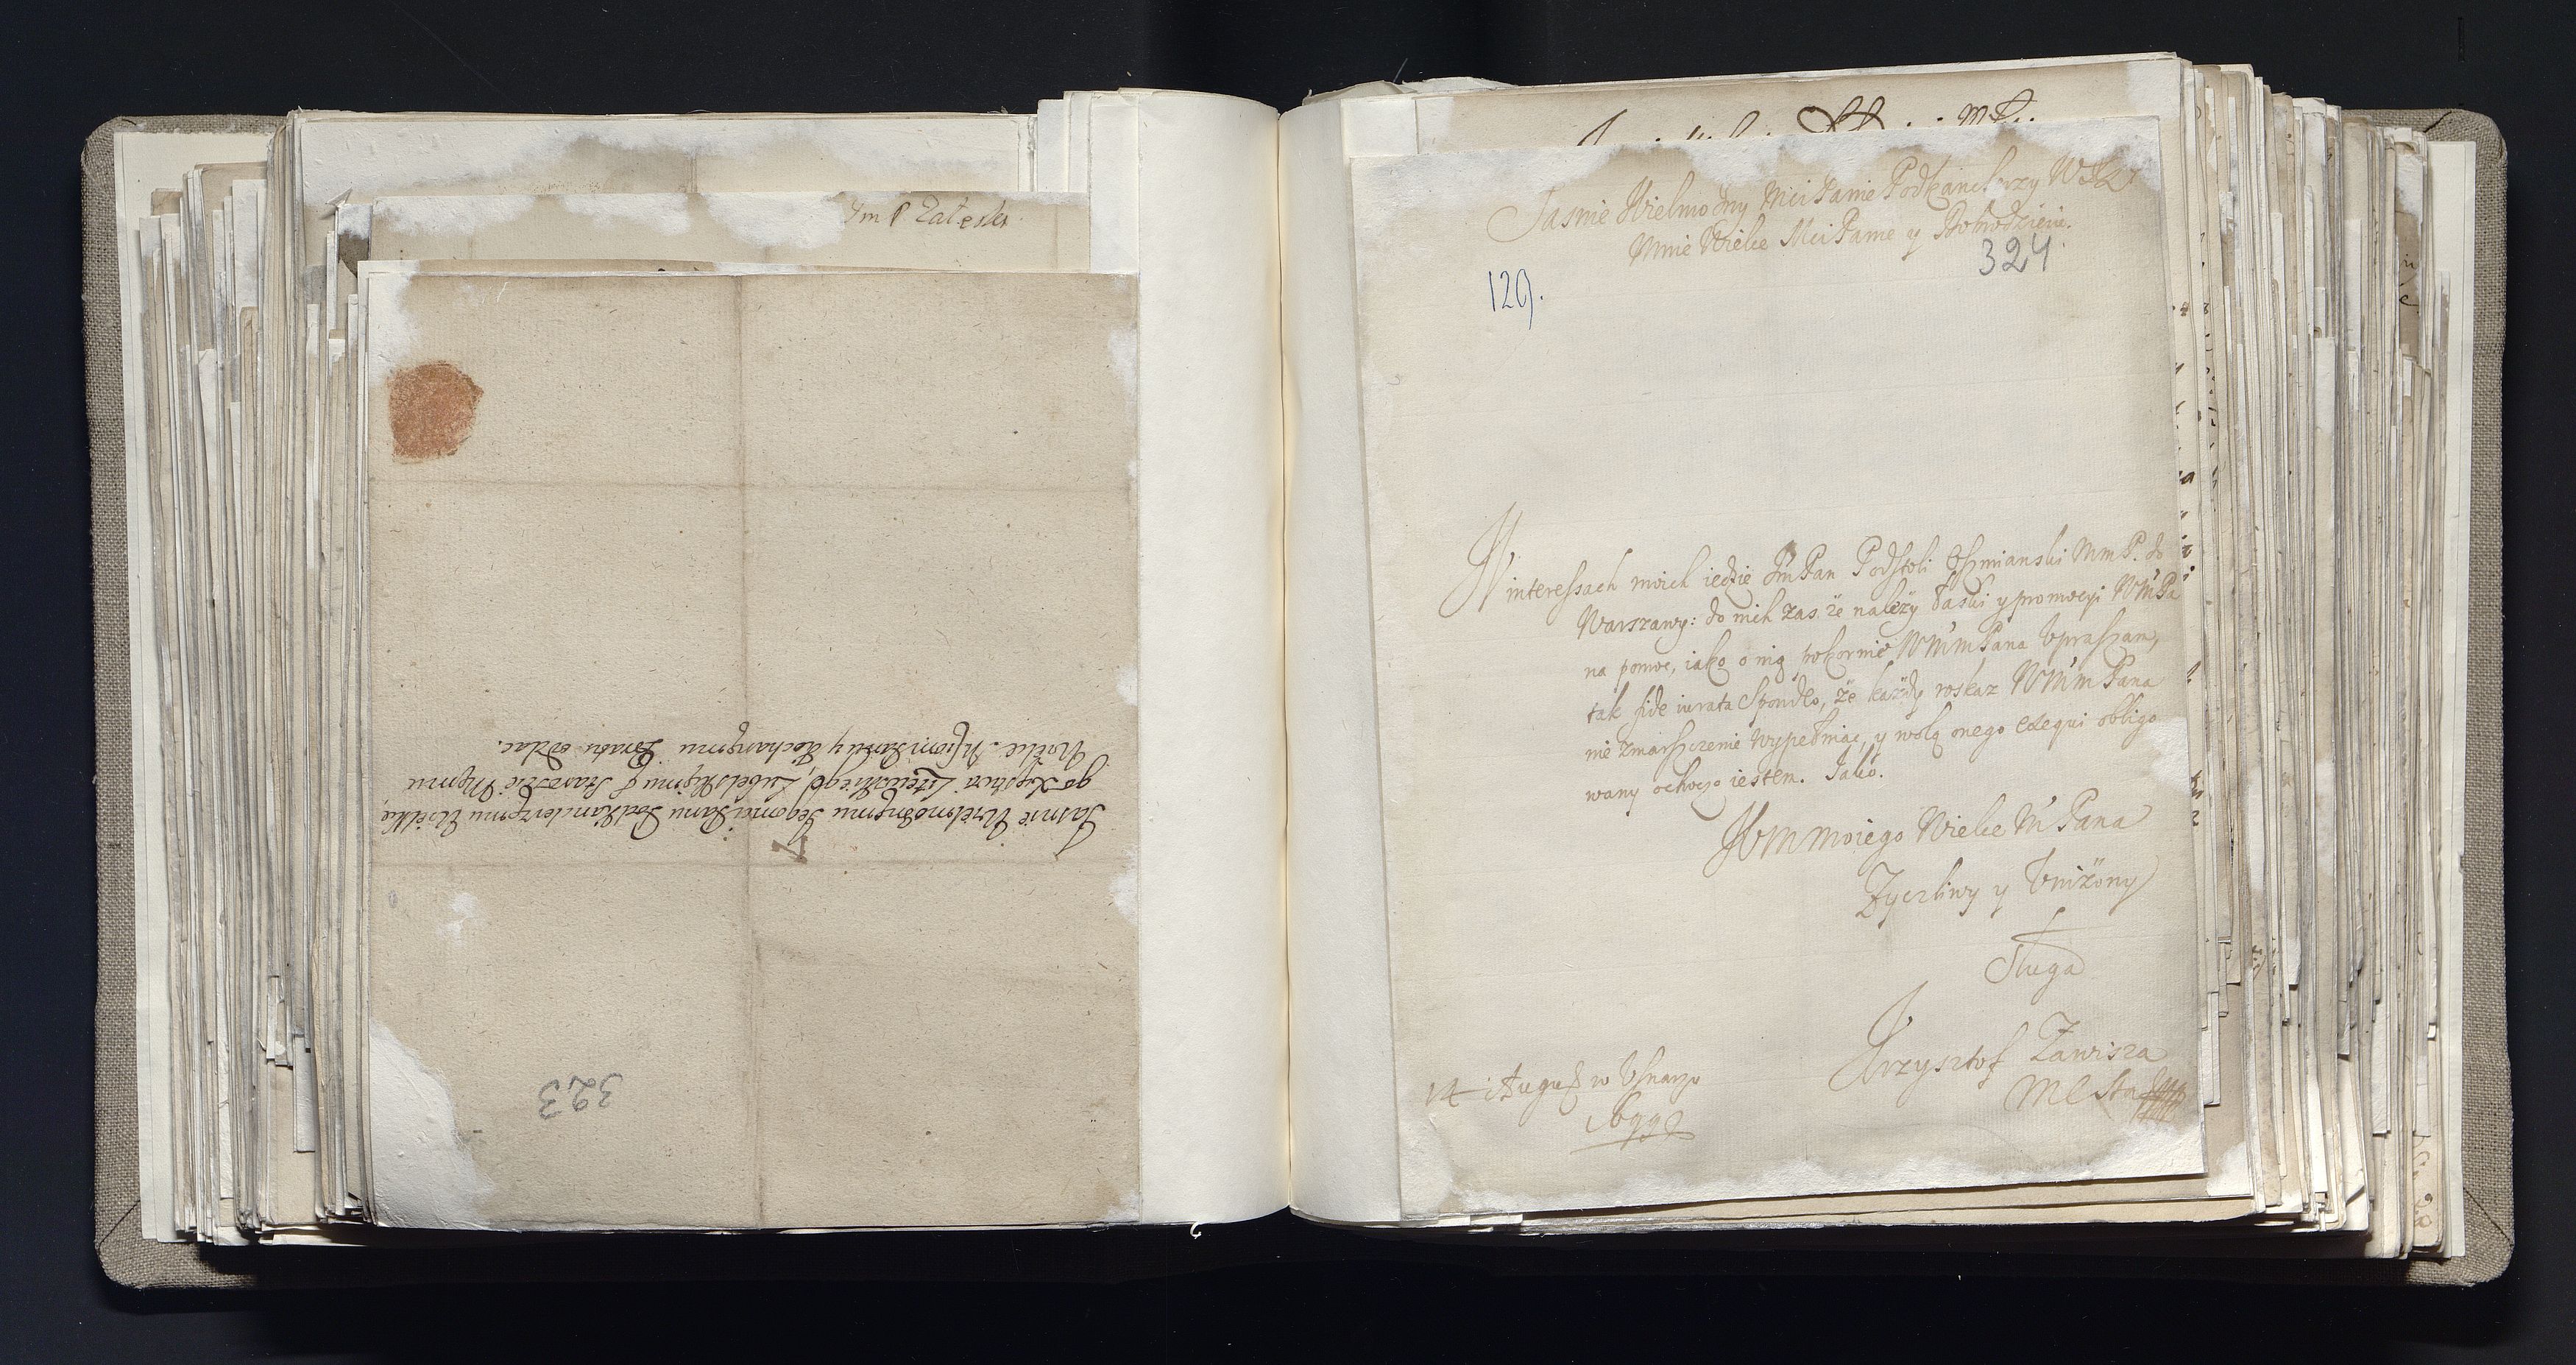 Im P Zaleski
Jasnie Wielmożnemu Jegomci Panu Podkanclerzemu Wielkie
go Xięstwa Litewskiego, Lubelskiemu Staroscie Memu
Wielce Mſciwemu Panu y Kochanemu Bratu oddac.
323
Jasnie Wielmożny Mci Panie Podkanclerzy WXL
Mnie Wielce Mci Panie y Dobrodzieiu.
324.
129.
W interessach moich iedzie Jm Pan Podstoli Oszmianski MmP. do
Warszawy: do nich zas że należy łaski y promocyi WMPa
na pomoc, iako o nią pokornie WMm Pana Upraszam,
tak fide iurata spondeo, że każdy roskaz WMm Pana
nie zmarszczenie wypełniąc, y wolą onego exequi obligo
wany ochoczo iestem. Jako.
WM Moiego Wielce M Pana
Zyczliwy y Uniżony
Sługa
Krzysztof Zawisza
M C Sta
14 August w